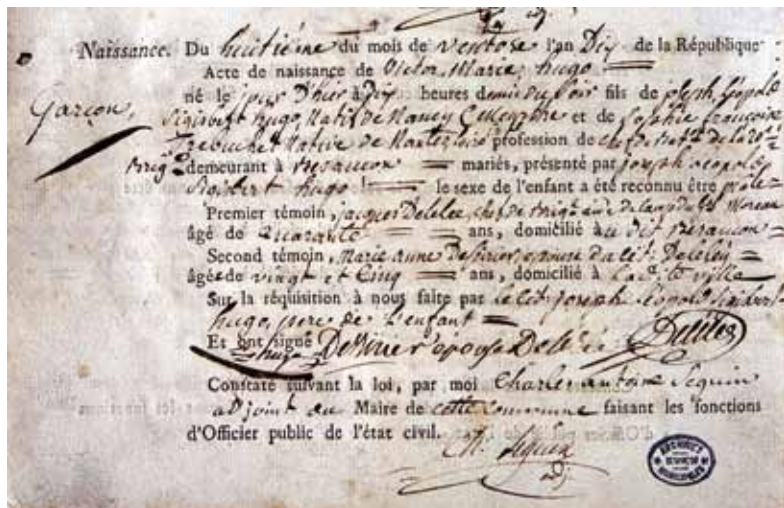 Naissance. Du huitième du mois de Ventose l'an Dix de la République
Acte de naissance de Victor, Marie, hugo
Garçon, né le jour D'hier à Dix heures demie du Soir fils de joseph, Léopold
Sigisbert hugo, Natif de Nancy et de Sophie françoise
Trebuchet Native de Nantes profession de chef de Bat.on de la 20.me
Brig.de demeurant à Besancon mariés, présenté par joseph Leopold
Sigisbert hugo le sexe de l'enfant a été reconnu être mâle
Premier témoin, jacques Delelee, chef de Brig.de aide de camp du Moreau
âgé de quarante ans, domicilié au dit Besancon
Second témoin, Marie anne Dessirier, epouse du cit. Delelée
âgée de vingt et Cinq ans, domicilié à la ville
Sur la réquisition à nous faite par le cit. joseph Léopold Sigisbert
hugo, pere de L'enfant
Et ont signé
hugo Dessirier epouse Delelée Delelee
Constaté suivant la loi, par moi Charles antoine Seguin
adjoint au Maire de cette commune faisant les fonctions
d'Officier public de l'état civil.
Ch. Seguin
adj.
ARCHIVES
BESANÇON
MUNICIPALES